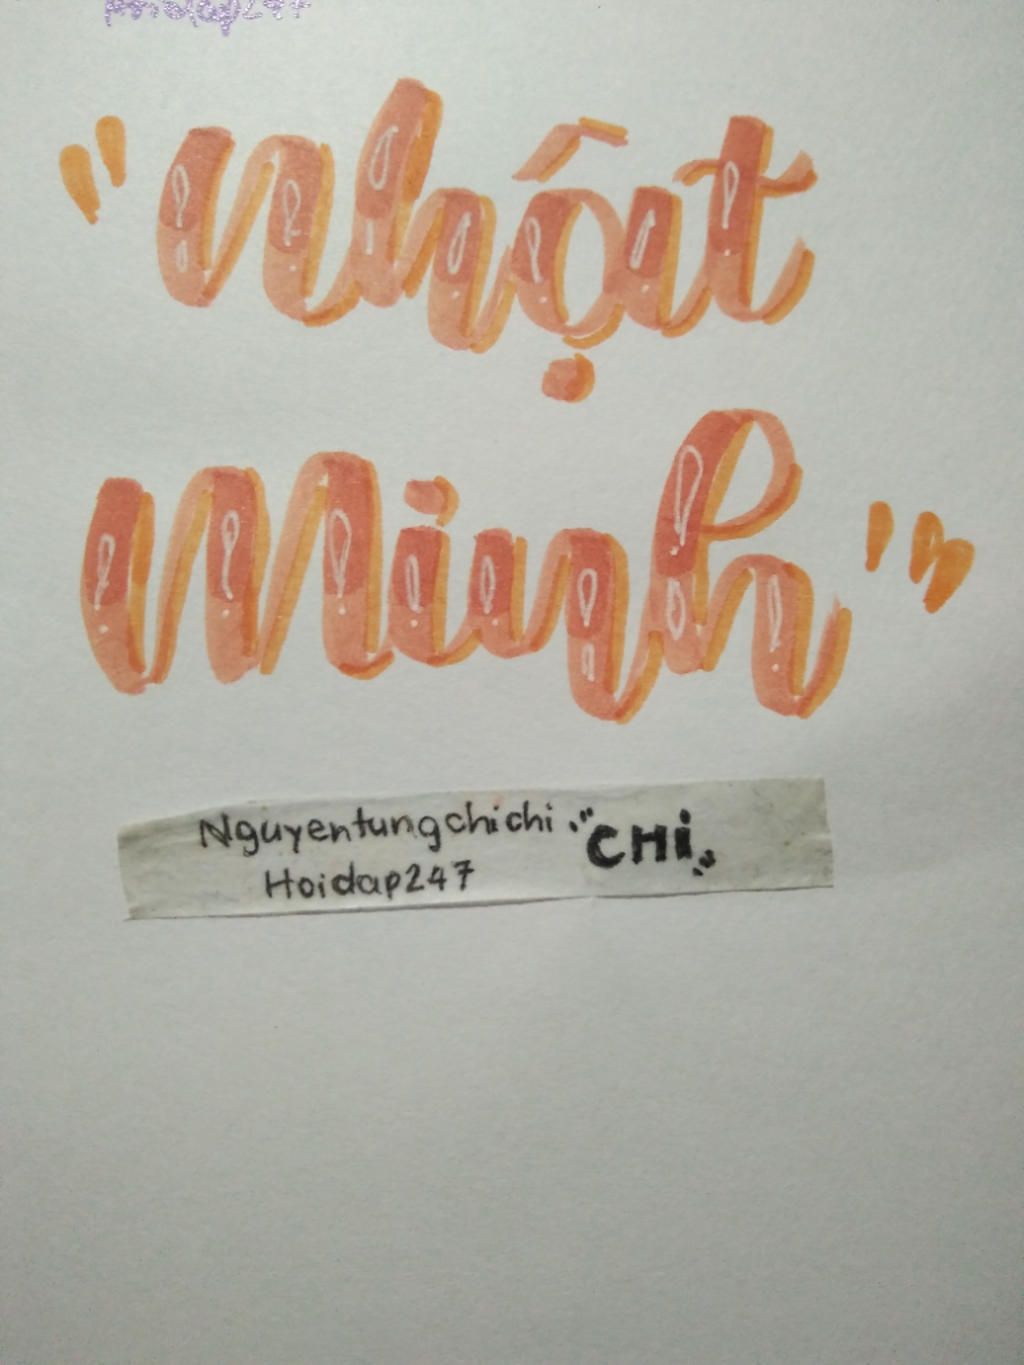 "Nhật
Minh"
Nguyentungchichi "CHi"
Hoidap247